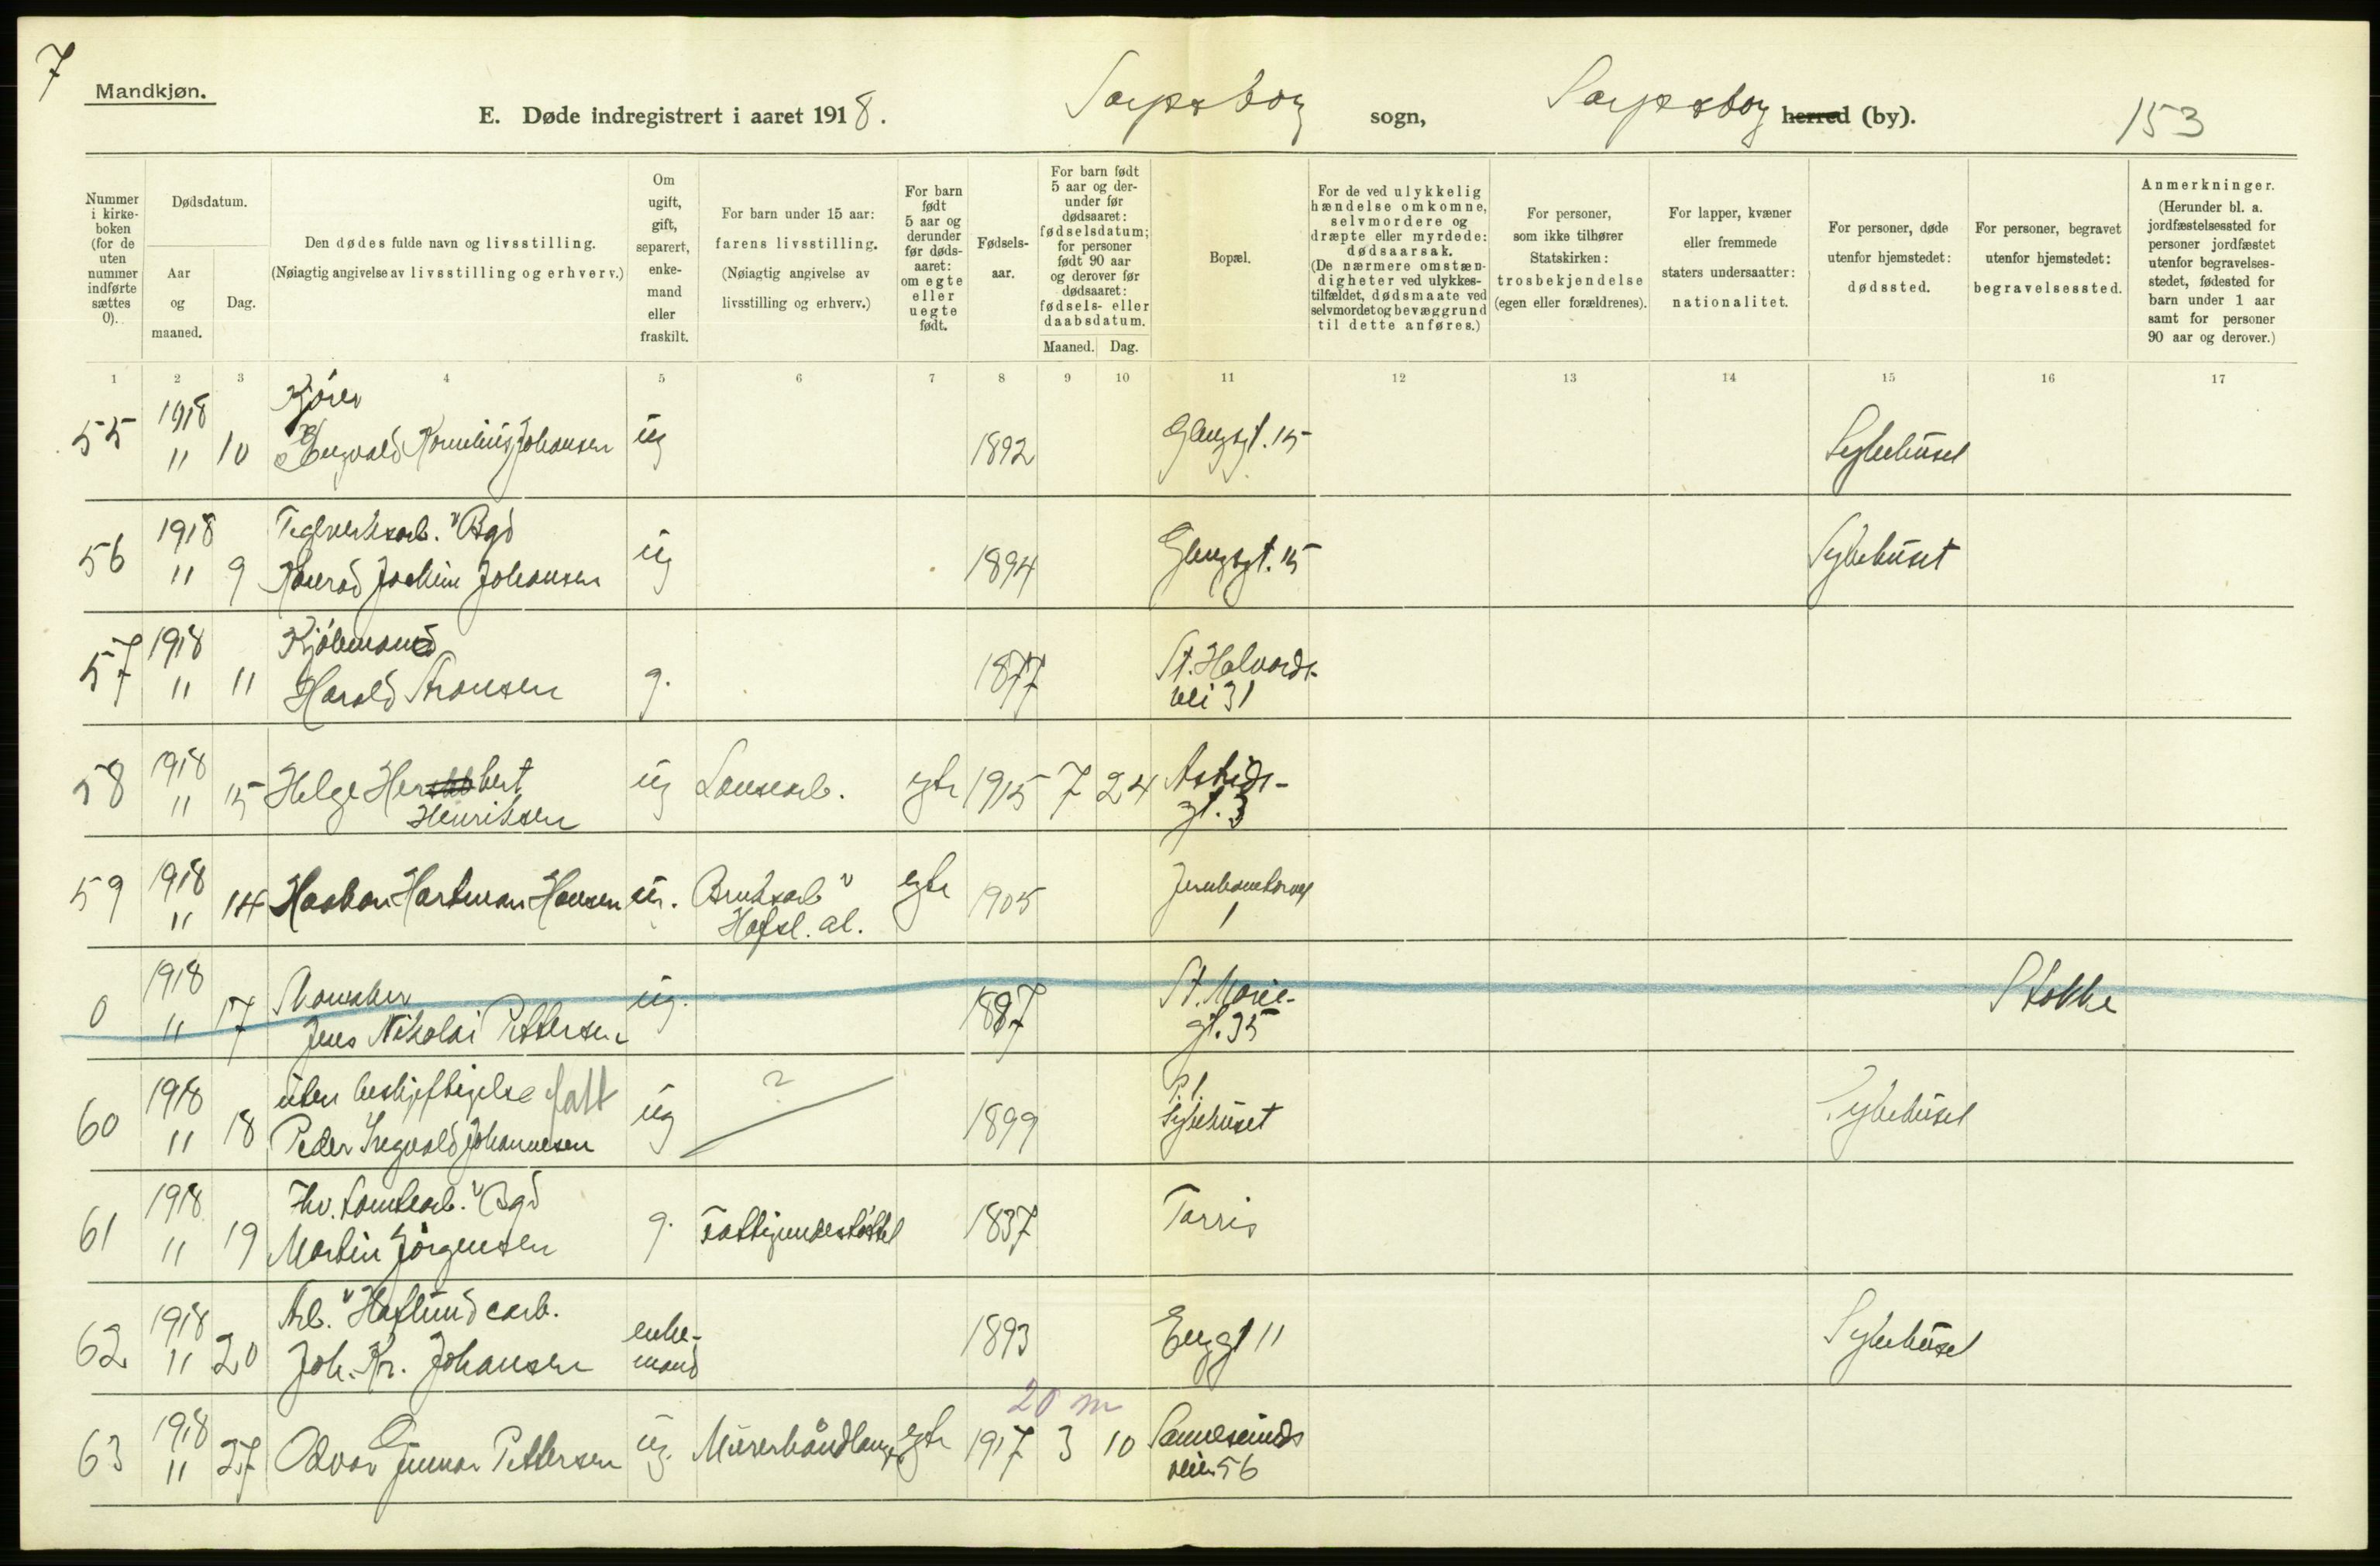 7
Mandkjøn.
E. Døde indregistrert i aaret 1918. Sarpsborg sogn, Sarpsborg herred (by). 153
Nummer i kirke-boken (for de uten nummer indførte sættes 0).
Dødsdatum.
Aar og maaned.
Dag.
Den dødes fulde navn og livsstilling.
(Nøiagtig angivelse av livsstilling og erhverv.)
Om ugift, gift, separert, enke-mand eller fraskilt.
For barn under 15 aar: farens livsstilling.
(Nøiagtig angivelse av livsstilling og erhverv.)
For barn født 5 aar og derunder før døds-aaret: om egte eller uegte født.
Fødsels-aar.
For barn født 5 aar og der-under før dødsaaret: fødselsdatum; for personer født 90 aar og derover før dødsaaret: fødsels- eller daabsdatum.
Maaned. Dag.
Bopæl.
For de ved ulykkelig hændelse omkomne, selvmordere og dræpte eller myrdede: dødsaarsak.
(De nærmere omstæn-digheter ved ulykkes-tilfældet, dødsmaate ved selvmordet og bevæggrund til dette anføres.)
For personer, som ikke tilhører Statskirken: trosbekjendelse (egen eller forældrenes).
For lapper, kvæner eller fremmede staters undersaatter: nationalitet.
For personer, døde utenfor hjemstedet: dødssted.
For personer, begravet utenfor hjemstedet: begravelsessted.
Anmerkninger.
(Herunder bl. a. jordfæstelsessted for personer jordfæstet utenfor begravelses-stedet, fødested for barn under 1 aar samt for personer 90 aar og derover.)
1 2 3 4 5 6 7 8 9 10 11 12 13 14 15 16 17
1918 Kjører
55 11 10 Kornelius Johansen ug 1892 Glengsgt. 15 Sykehuset
1918 Teglverksarb. v Bgd
56 11 9 Konrad Joakim Johansen ug 1894 Glengsgt. 15 Sykehuset
1918 Kjøbmand
57 11 11 Harald Aronsen g. 1877 St. Halvards-
vei 31
1918
58 11 15 Helge Herbert ug Lousearb. egte 1915 7 24 Astrids-
Henriksen gt. 3
1918
59 11 14 Haakon Hartman Hansen ug. Bruksarb v egte 1905 Jernbanetorvet
Hafsl. al. 1
1918
0 11 17 Jens Nikolai Pettersen ug. 1887 St. Marie- Stokke
gt. 35
1918 uten beskjeftigelse fatt ? P.t.
60 11 18 Peder Ingvald Johannesen ug 1899 Sykehuset Sykehuset
1918 Fhv. tomtearb. v Bgd
61 11 19 Martin Jørgensen g. Fattigunderstøttet 1837 Tarris
1918 Arb. v Hafslund carb.
62 11 20 Joh. Kr. Johansen enke-
mand 1893 Enggt 11 Sykehuset
20 m
1918
63 11 27 Odvar Gunnar Pettersen ug. Murerhåndlanger egte 1917 3 10 Sannesunds
veien 56